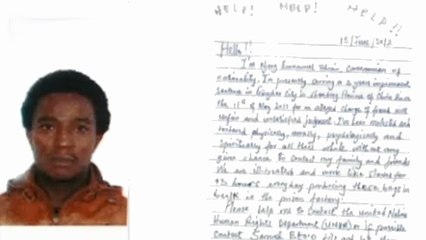 HELP! HELP! HELP!!
Hello!!
I'm Njong Emmanuel Cameroonian of
nationality. I'm presently serving a 3 years imprisonment
sentence in City in Shandong Province of China since
the 11th of May 2011 for an alleged charge of fraud with
unfair and unsatisfied judgment. I've been molested and
tortured physically, morally, psychologically and
spiritually for all these while without any
given chance to contact my family and friends
We are ill-treated and work like slaves for
13 hours everyday producing these bags in
bulk in the prison factory.
Please help me to contact the United Nations
Human Rights Department (UNHR) or if possible
contact Samuel Eto'o